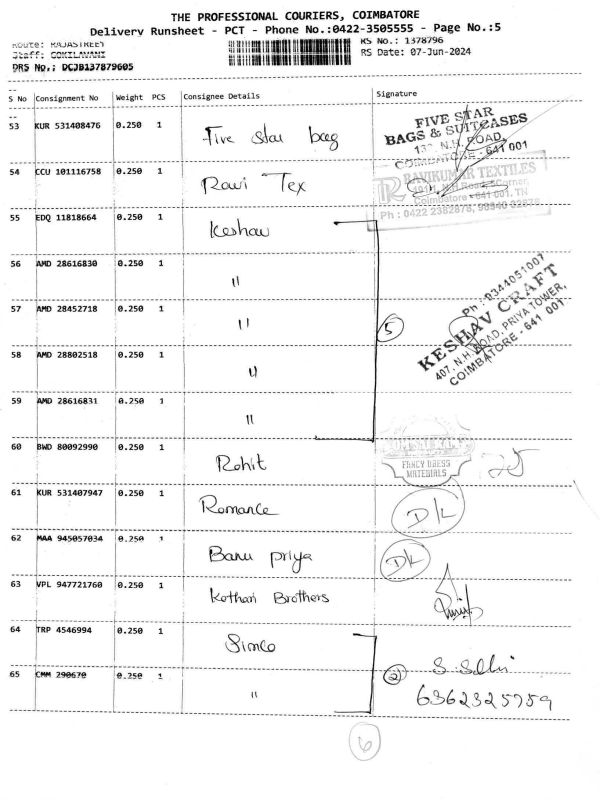 THE PROFESSIONAL COURIERS, COIMBATORE
Delivery Runsheet - PCT - Phone No.:0422-3505555 - Page No.:5
Route: RAJASTREET
Staff: GOKILAVANI
DRS No.: DCJB137879605
RS No.: 1378796
RS Date: 07-Jun-2024
S No Consignment No Weight PCS Consignee Details Signature
53 KUR 531408476 0.250 1 Five star bag
FIVE STAR
BAGS & SUITCASES
N.H. ROAD,
COIMBATORE - 641 001
54 CCU 101116758 0.250 1 Ravi Tex
RAVIKUMAR TEXTILES
Coimbatore - 641 001. TN
Ph : 0422 2382878,
55 EDQ 11818664 0.250 1 Keshav
56 AMD 28616830 0.250 1 "
57 AMD 28452718 0.250 1 " 5
58 AMD 28802518 0.250 1 "
59 AMD 28616831 0.250 1 "
Ph : 9344051007
KESHAV CRAFT
407, N.H. ROAD, PRIYA TOWER,
COIMBATORE - 641 001
60 BWD 80092990 0.250 1 Rohit
FANCY DRESS
MATERIALS
61 KUR 531407947 0.250 1 Romance D/L
62 MAA 945057034 0.250 1 Banu priya D/L
63 VPL 947721760 0.250 1 Kothari Brothers
64 TRP 4546994 0.250 1 Simco
65 CMM 290670 0.250 1 " 2
6362325759
6